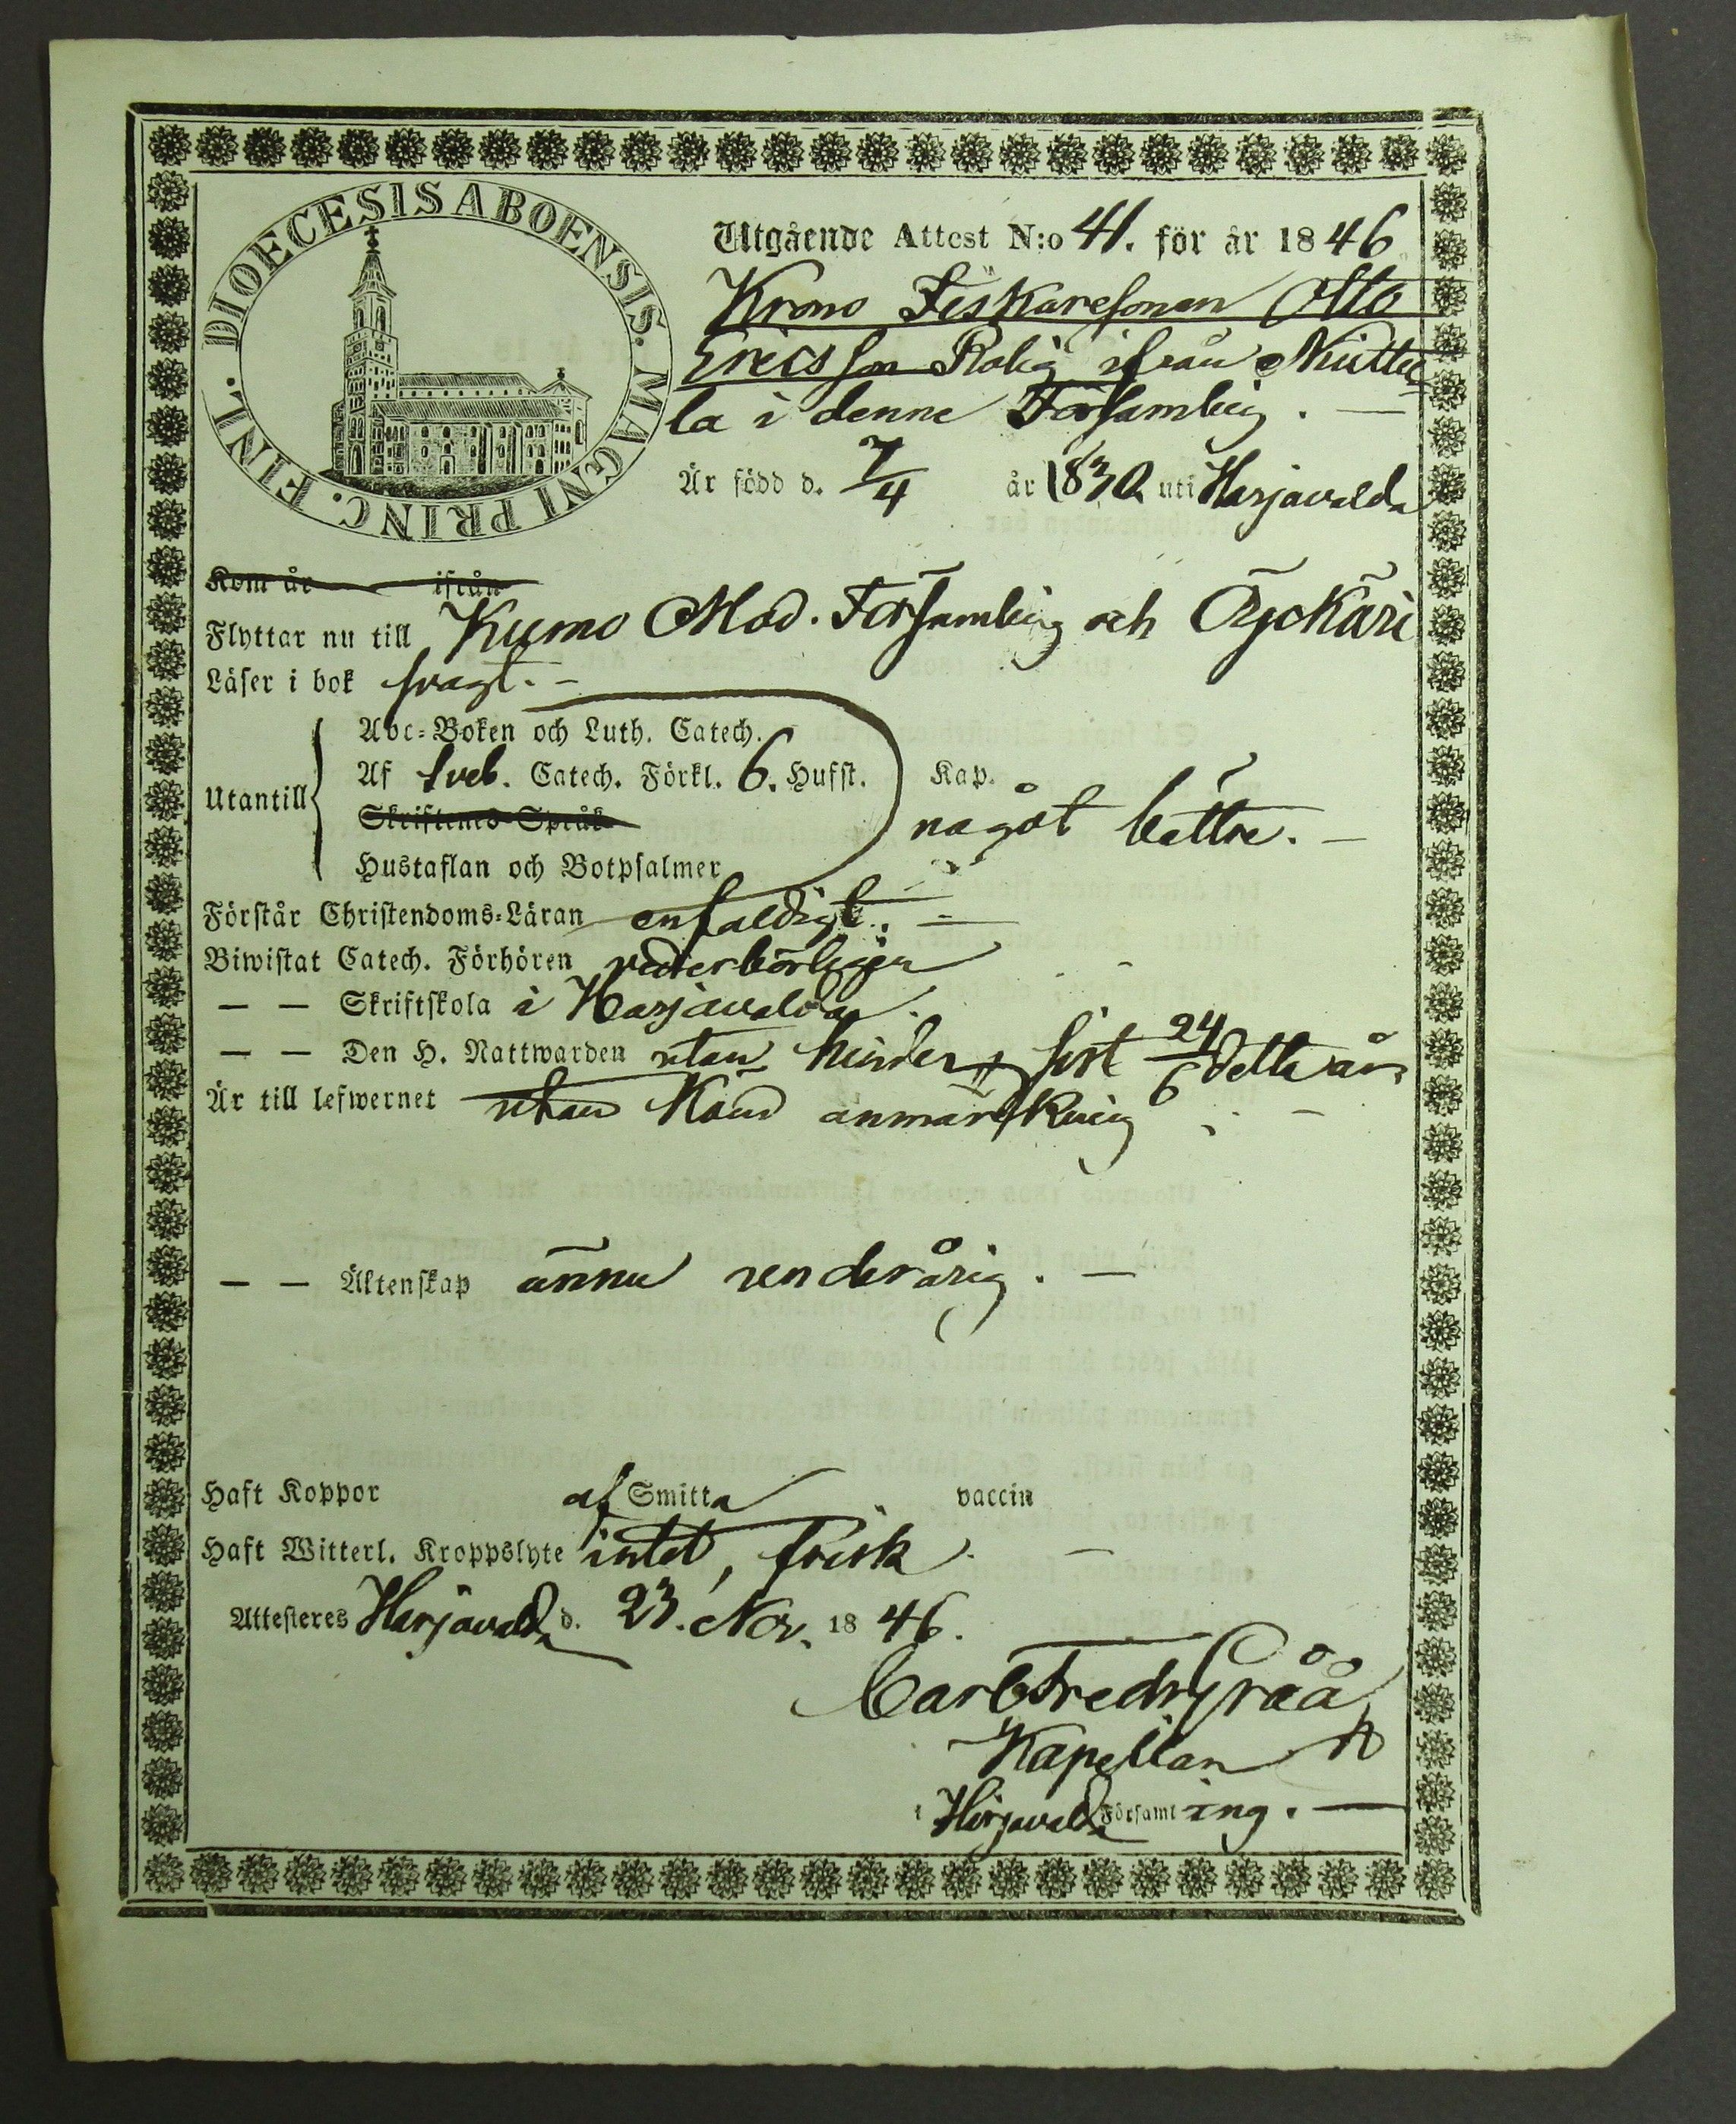 DIOECESIS ABOENSIS. MAGNI PRINC. FINL.
Utgående Attest N:o 41. för år 1846
Krono Fiskaresonen Otto
Ericsson Rolig ifrån Nuttu
la i denne Församling. —
Är född d. 7/4 år 1830 uti Harjavalda
Kom år ifrån
Flyttar nu till Kumo Mod. Församling och Öyckäri
Läser i bok svagt. —
Abc-Boken och Luth. Catech.
Utantill Af Sveb. Catech. Förkl. 6. Hufst. Kap.
något bättre. —
Skriftenes-Språk
Hustaflan och Botpsalmer
Förstår Christendoms-Läran enfaldigt. —
Biwistat Catech. Förhören vederbörligen
— — Skriftskola i Harjavalda.
— — Den H. Nattwarden utan hinder sist 24/6 detta år.
Är till lefwernet utan känd anmärkning. —
— — Äktenskap ännu underårig. —
Haft Koppor af Smitta vaccin
Haft Witterl. Kroppslyte intet, frisk. —
Attesteres Harjavalda d. 23. Nov. 1846.
Carl Fredr Gråå
Kapellan
i Harjavalda Församling. —